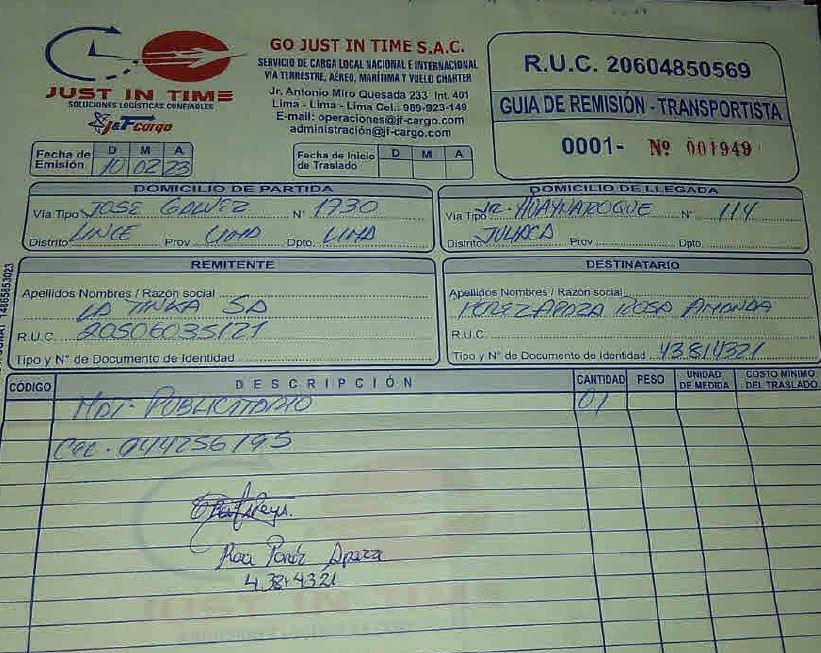 GO JUST IN TIME S.A.C.
SERVICIO DE CARGA LOCAL NACIONAL E INTERNACIONAL
VIA TERRESTRE, AÉREO, MARÍTIMA Y VUELO CHARTER
Jr. Antonio Miro Quesada 233 Int. 401
Lima - Lima - Lima Cel.: 989-923-149
E-mail: operaciones@jf-cargo.com
administración@jf-cargo.com
JUST IN TIME
SOLUCIONES LOGÍSTICAS CONFIABLES
J&F Cargo
R.U.C. 20604850569
GUIA DE REMISIÓN - TRANSPORTISTA
0001- Nº 001949
Fecha de Emisión D M A 10 02 23
Fecha de Inicio de Traslado D M A
DOMICILIO DE PARTIDA
Via Tipo JOSE GALVEZ Nº 1730
Distrito LINCE Prov LIMA Dpto. LIMA
DOMICILIO DE LLEGADA
Via Tipo JR. HUAYNAROQUE Nº 114
Distrito JULIACA Prov Dpto
REMITENTE
Apellidos Nombres / Razón social
LA TINKA SA
R.U.C. 20506035121
Tipo y N° de Documento de Identidad
DESTINATARIO
Apellidos Nombres / Razón social
PEREZ APAZA ROSA AMANDA
R.U.C.
Tipo y N° de Documento de Identidad 43814321
CÓDIGO DESCRIPCIÓN CANTIDAD PESO UNIDAD DE MEDIDA COSTO MÍNIMO DEL TRASLADO
MAT. PUBLICITARIO 01
CEL. 944256195
Rosa Peréz Apaza
43814321
JUST IN TIME